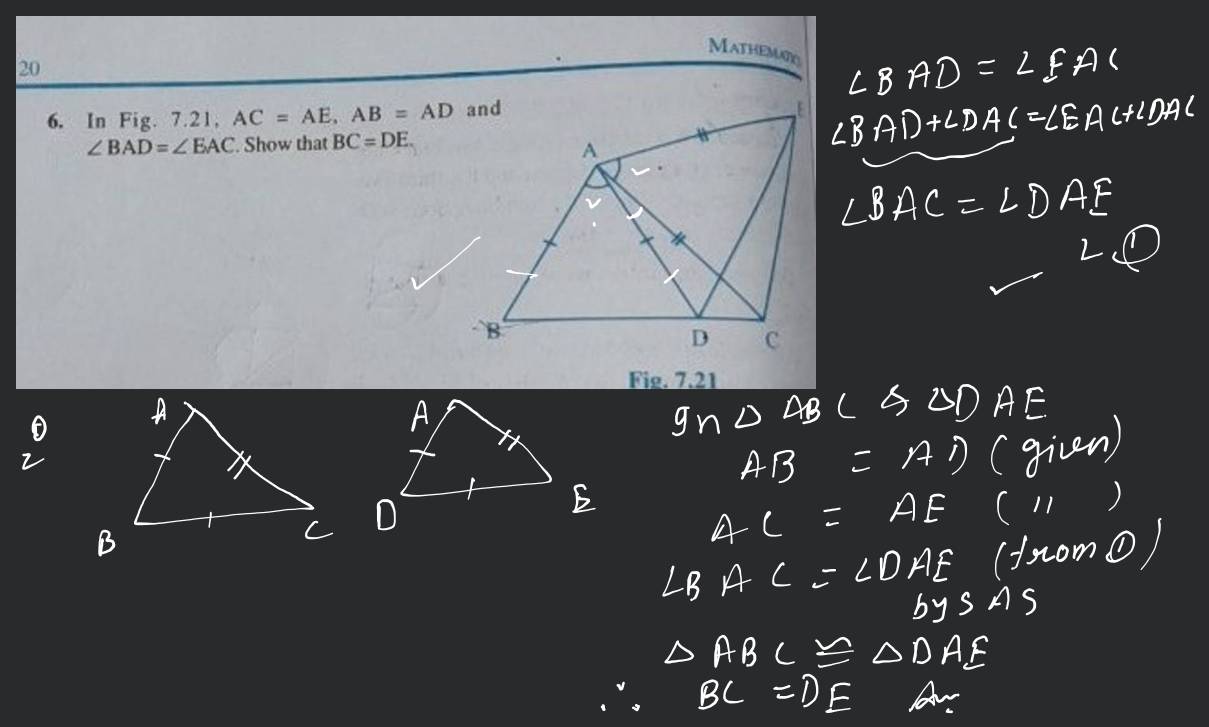 20
MATHEMATICS
6. In Fig. 7.21, AC = AE, AB = AD and
∠BAD = ∠EAC. Show that BC = DE.
A
E
B
D
C
Fig. 7.21
∠BAD = ∠EAC
∠BAD+∠DAC=∠EAC+∠DAC
∠BAC = ∠DAE
∠①
①
2
A
B
C
A
D
E
In △ ABC & △DAE
AB = AD (given)
AC = AE ( " )
∠BAC = ∠DAE (from ①)
by SAS
△ABC ≅ △DAE
∴ BC = DE Ans